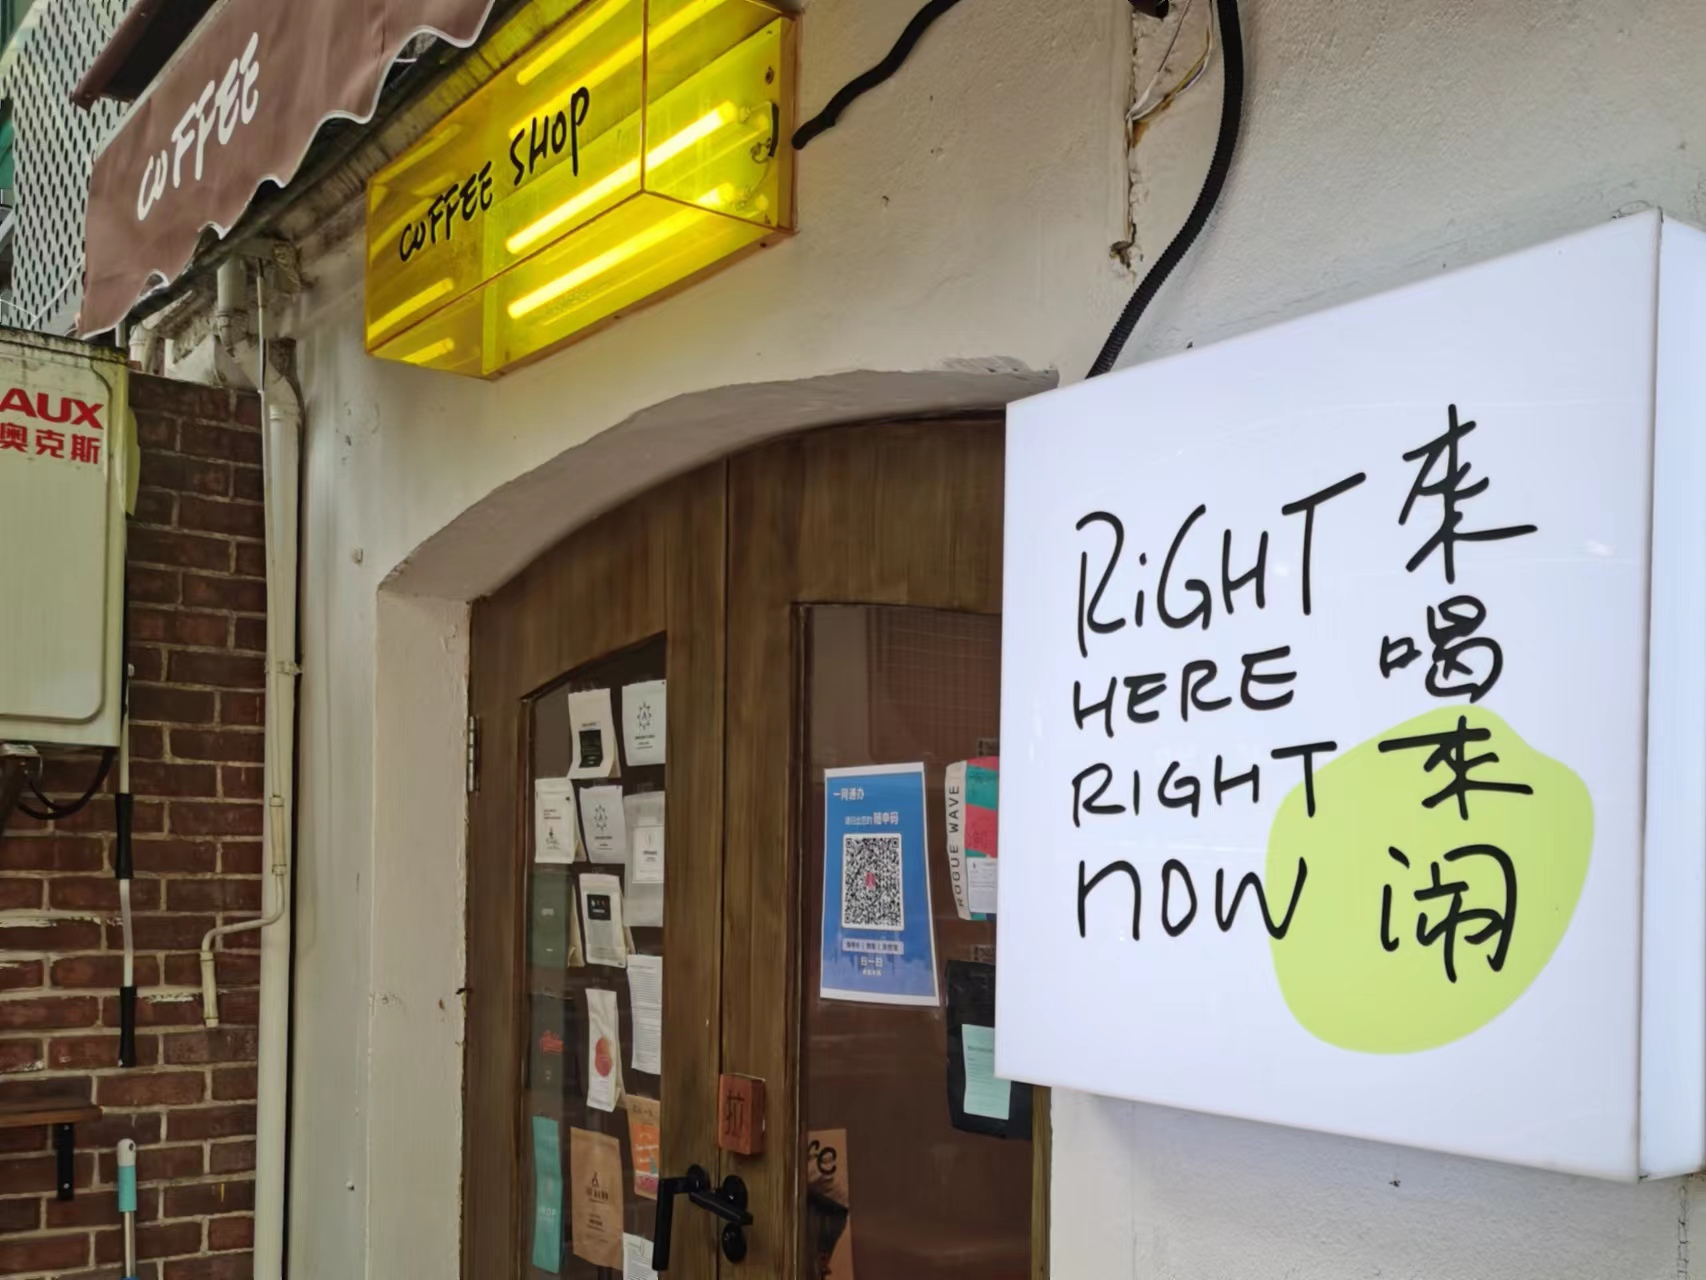 COFFEE
COFFEE SHOP
AUX
奥克斯
RiGHT
HERE
RIGHT
NOW
來喝來闹
一网通办
随申码
扫一扫
ROGUE WAVE
拉
fe